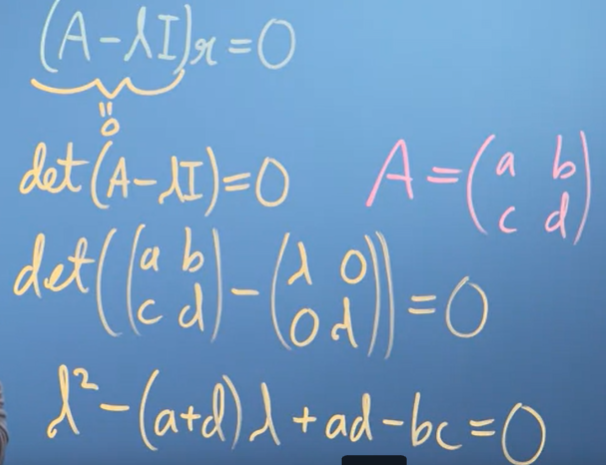 (A-λI)x=0
"
0
det(A-λI)=0
A=(a b
c d)
det((a b
c d)-(λ 0
0 λ))=0
λ²-(a+d)λ+ad-bc=0